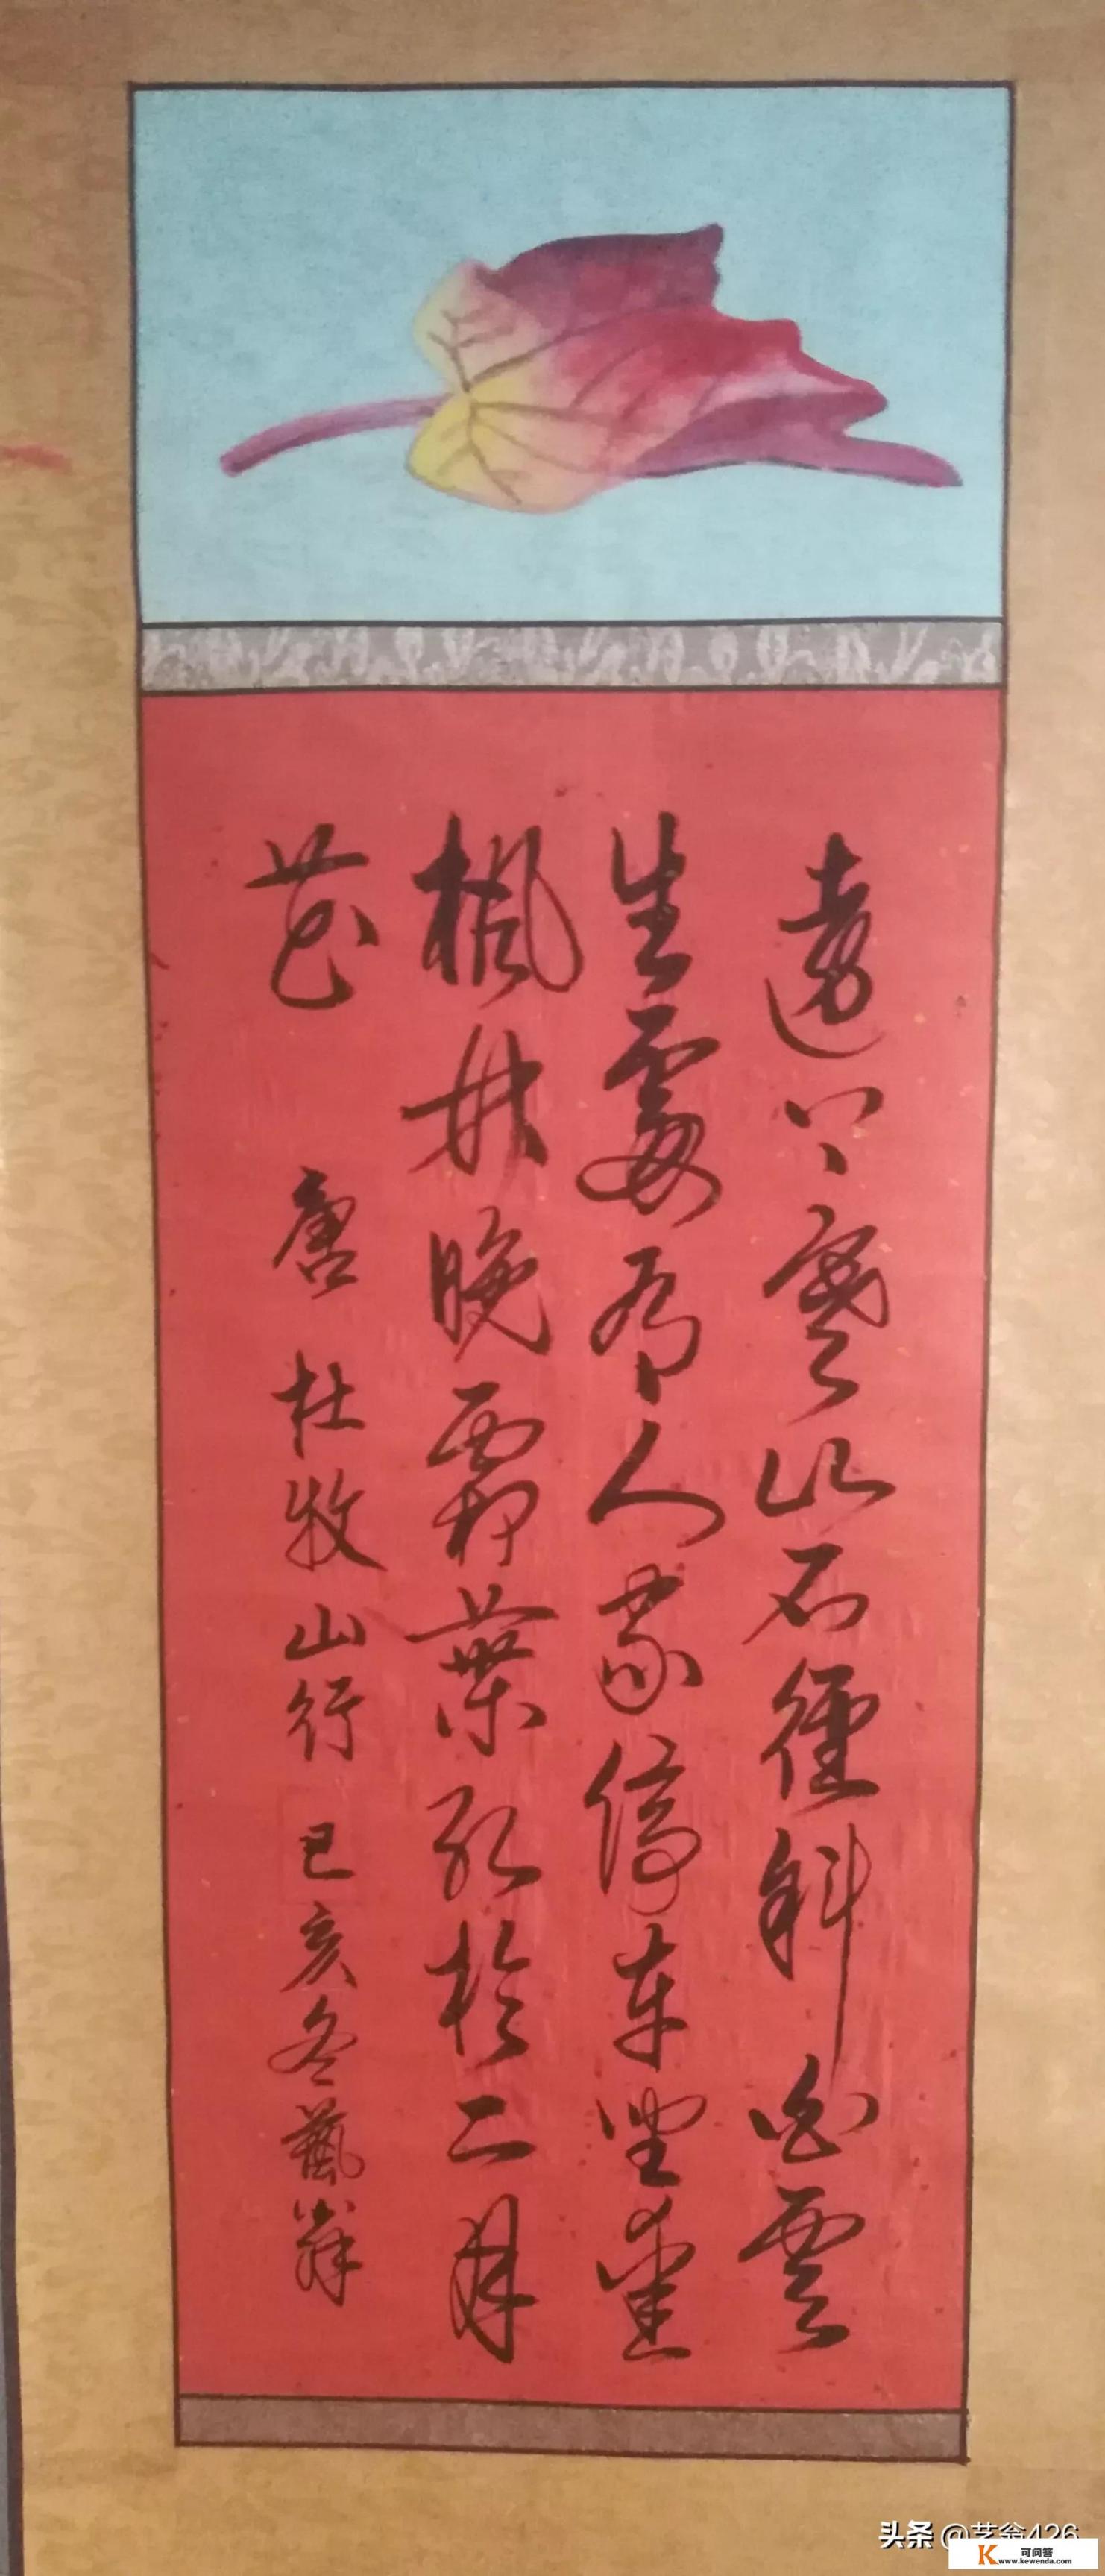 遠上寒山石徑斜白雲
生處有人家停車坐愛
楓林晚霜葉紅於二月
花 唐 杜牧 山行 己亥冬藝翁
头条 @艺翁426
K 可问答
www.kewenda.com